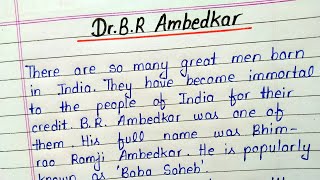 Dr.B.R Ambedkar
There are so many great men born
in India. They have become immortal
to the people of India for their
credit. B.R. Ambedkar was one of
them. His full name was Bhim-
rao Ramji Ambedkar. He is popularly
known as 'Baba Saheb'.